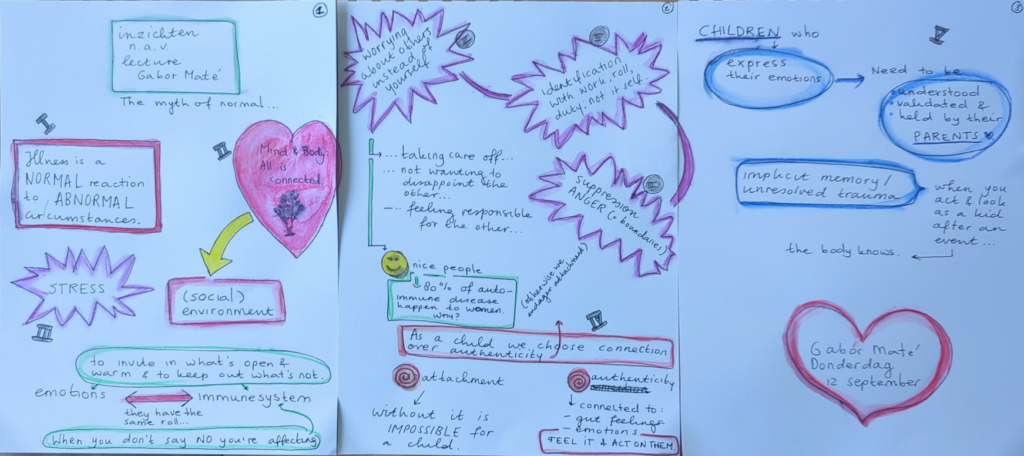 1
inzichten
n.a.v.
lecture
Gabor Maté
The myth of normal...
I
Illness is a
NORMAL reaction
to ABNORMAL
circumstances.
II
Mind & Body
All is
connected.
STRESS
(social)
environment
III
to invite in what's open &
warm & to keep out what's not.
emotions
immunesystem
they have the
same roll...
When you don't say NO you're affecting
Worrying
about others
instead of
yourself
Identification
with work, roll,
duty: not it self.
... taking care off...
... not wanting to
disappoint the
other...
... feeling responsible
for the other...
SUPPRESSION
ANGER (& boundaries)
(otherwise we
endanger attachment)
nice people
80% of auto-
immune disease
happen to women.
WHY?
IV
As a child we choose connection
over authenticity
attachment
without it is
IMPOSSIBLE for
a child.
authenticity
connection
connected to:
- gut feelings
- emotions
FEEL IT & ACT ON THEM
3
V
CHILDREN who
express
their emotions
Need to be
• understood
• validated &
• held by their
PARENTS
implicit memory/
unresolved trauma
when you
act & look
as a kid
after an
event...
the body knows.
Gabor Maté
Donderdag
12 september